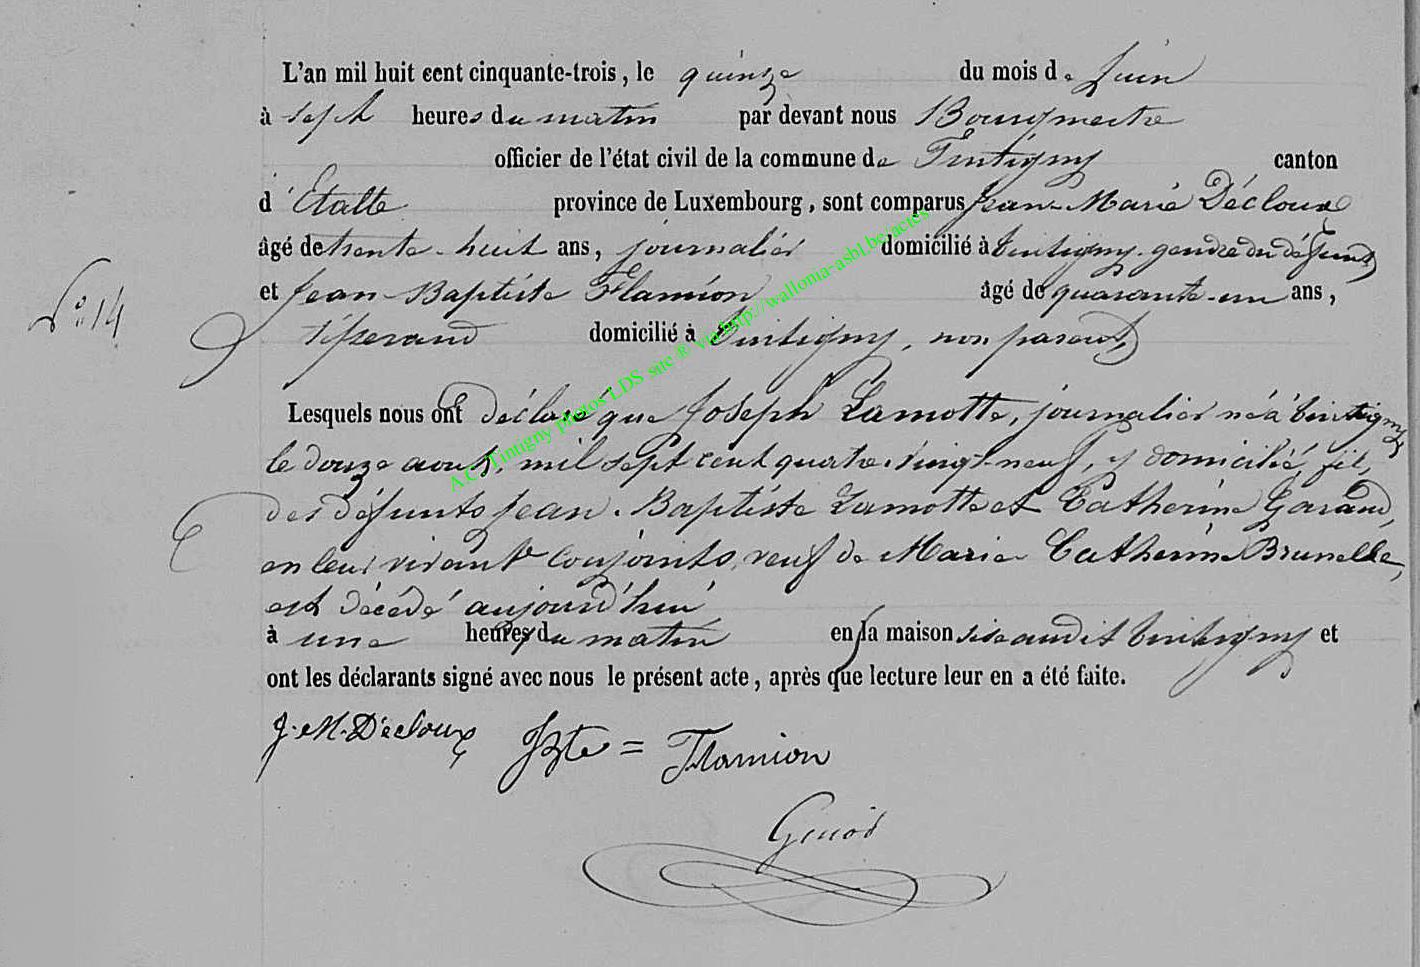 L'an mil huit cent cinquante-trois, le quinze du mois de Juin
à sept heures du matin par devant nous Bourgmestre
officier de l'état civil de la commune de Tintigny canton
d'Etalle province de Luxembourg, sont comparus Jean-Marie Décloux
âgé de trente-huit ans, journalier domicilié à tintigny gendre du défunt
et Jean-Baptiste Flamion âgé de quarante-un ans,
No 14
tisserand domicilié à Tintigny, non parent,
Lesquels nous ont déclaré que Joseph Lamotte, journalier né à tintigny
le douze aout, mil sept cent quatre-vingt-neuf, y domicilié, fils
des défunts Jean-Baptiste Lamotte et Catherine
en leur vivant conjoints, veuf de Marie Catherine Brunelle,
est décédé aujourd'hui
à une heures du matin en la maison sise audit tintigny et
ont les déclarants signé avec nous le présent acte, après que lecture leur en a été faite.
J. M. Décloux JBte = Flamion
A.C. Tintigny photos LDS site ® via http://wallonia-asbl.be/actes